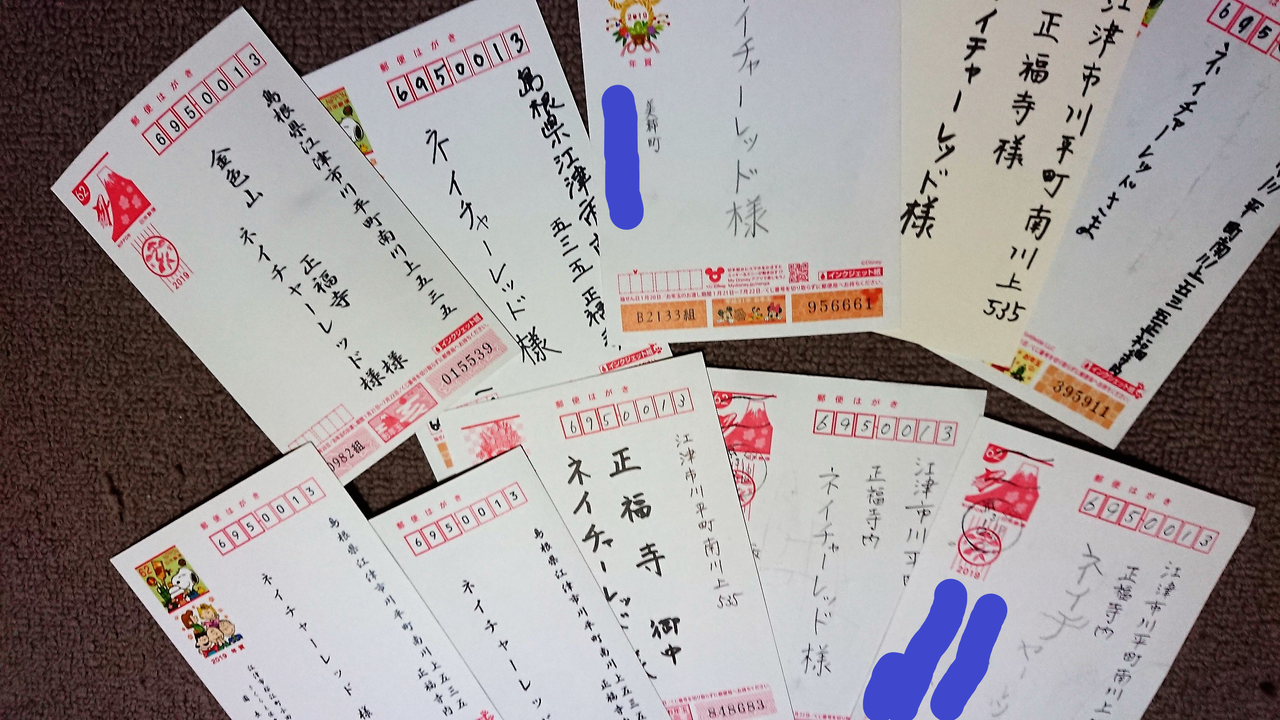 郵便はがき
6950013
島根県江津市川平町南川上五三五
正福寺
金色山 ネイチャーレッド様
様
62
NIPPON
日本郵便
2019
インクジェット紙
015539
0982組
郵便はがき
6950013
島根県江津市
五三五 正福
ネイチャーレッド様
2019
年賀
イチャーレッド様
美郷町
©Disney
インクジェット紙
B2133組
956661
江津市川平町南川上535
正福寺様
イチャーレッド様
695
川平町南川上五三五正福寺内
ネイチャーレッドさま
インクジェット紙
395911
郵便はがき
6950013
島根県江津市川平町南川上五三五
正福寺内
ネイチャーレッド様
62
2019 年賀
郵便はがき
6950013
島根県江津市川平町南川上五三五
正福寺内
ネイチャーレッ
郵便はがき
6950013
江津市川平町南川上535
正福寺 御中
ネイチャーレッ
848683
62
郵便はがき
6950013
江津市川平
正福寺内
ネイチャーレッド様
62
2019
郵便はがき
6950013
江津市川平町南川上
正福寺内
ネイチャー